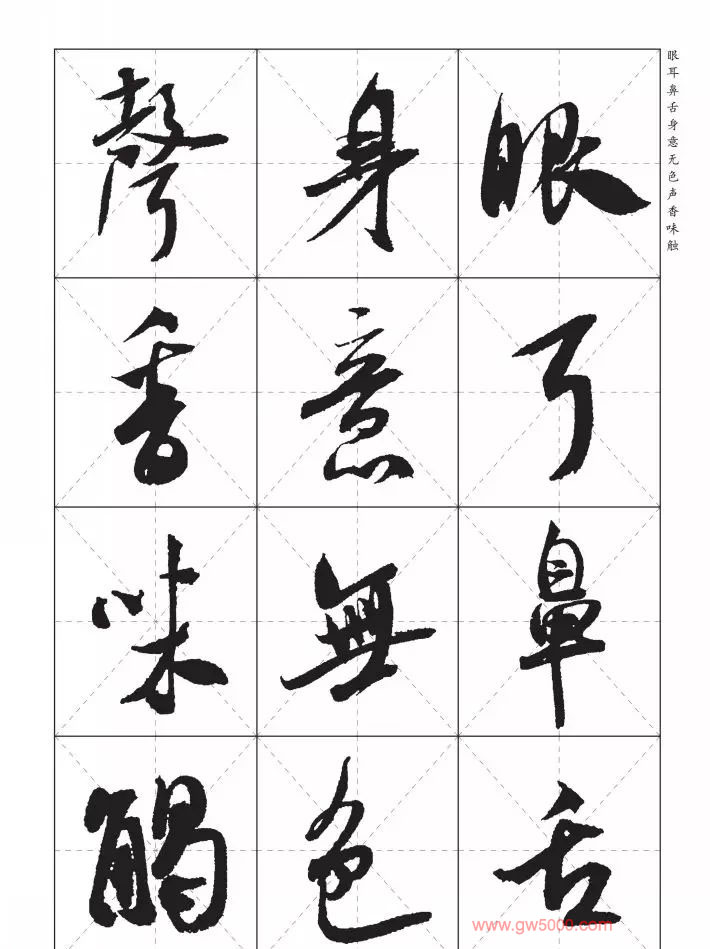 眼耳鼻舌身意无色声香味触
眼耳鼻舌
身意無色
聲香味觸
www.gw5000.com